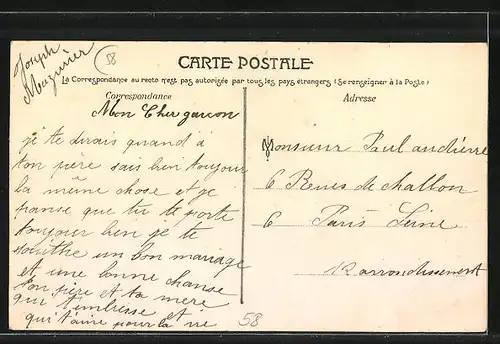 Joseph
Mazurier
58
CARTE POSTALE
La Correspondance au recto n'est pas autorisée par tous les pays étrangers (Se renseigner à la Poste)
Correspondance
Adresse
Mon Cher garcon
je te dirais quand á
ton père sais bien toujour
la même chose et je
panse que tu te porte
toujour bien je te
souithe un bon mariage
et une bonne chanse
ton père et ta mere
qui t'embresse et
qui t'aime pour la vie
Monsieur Paul
6 Reues de challon
6 Paris Seine
12 arrondissement
58